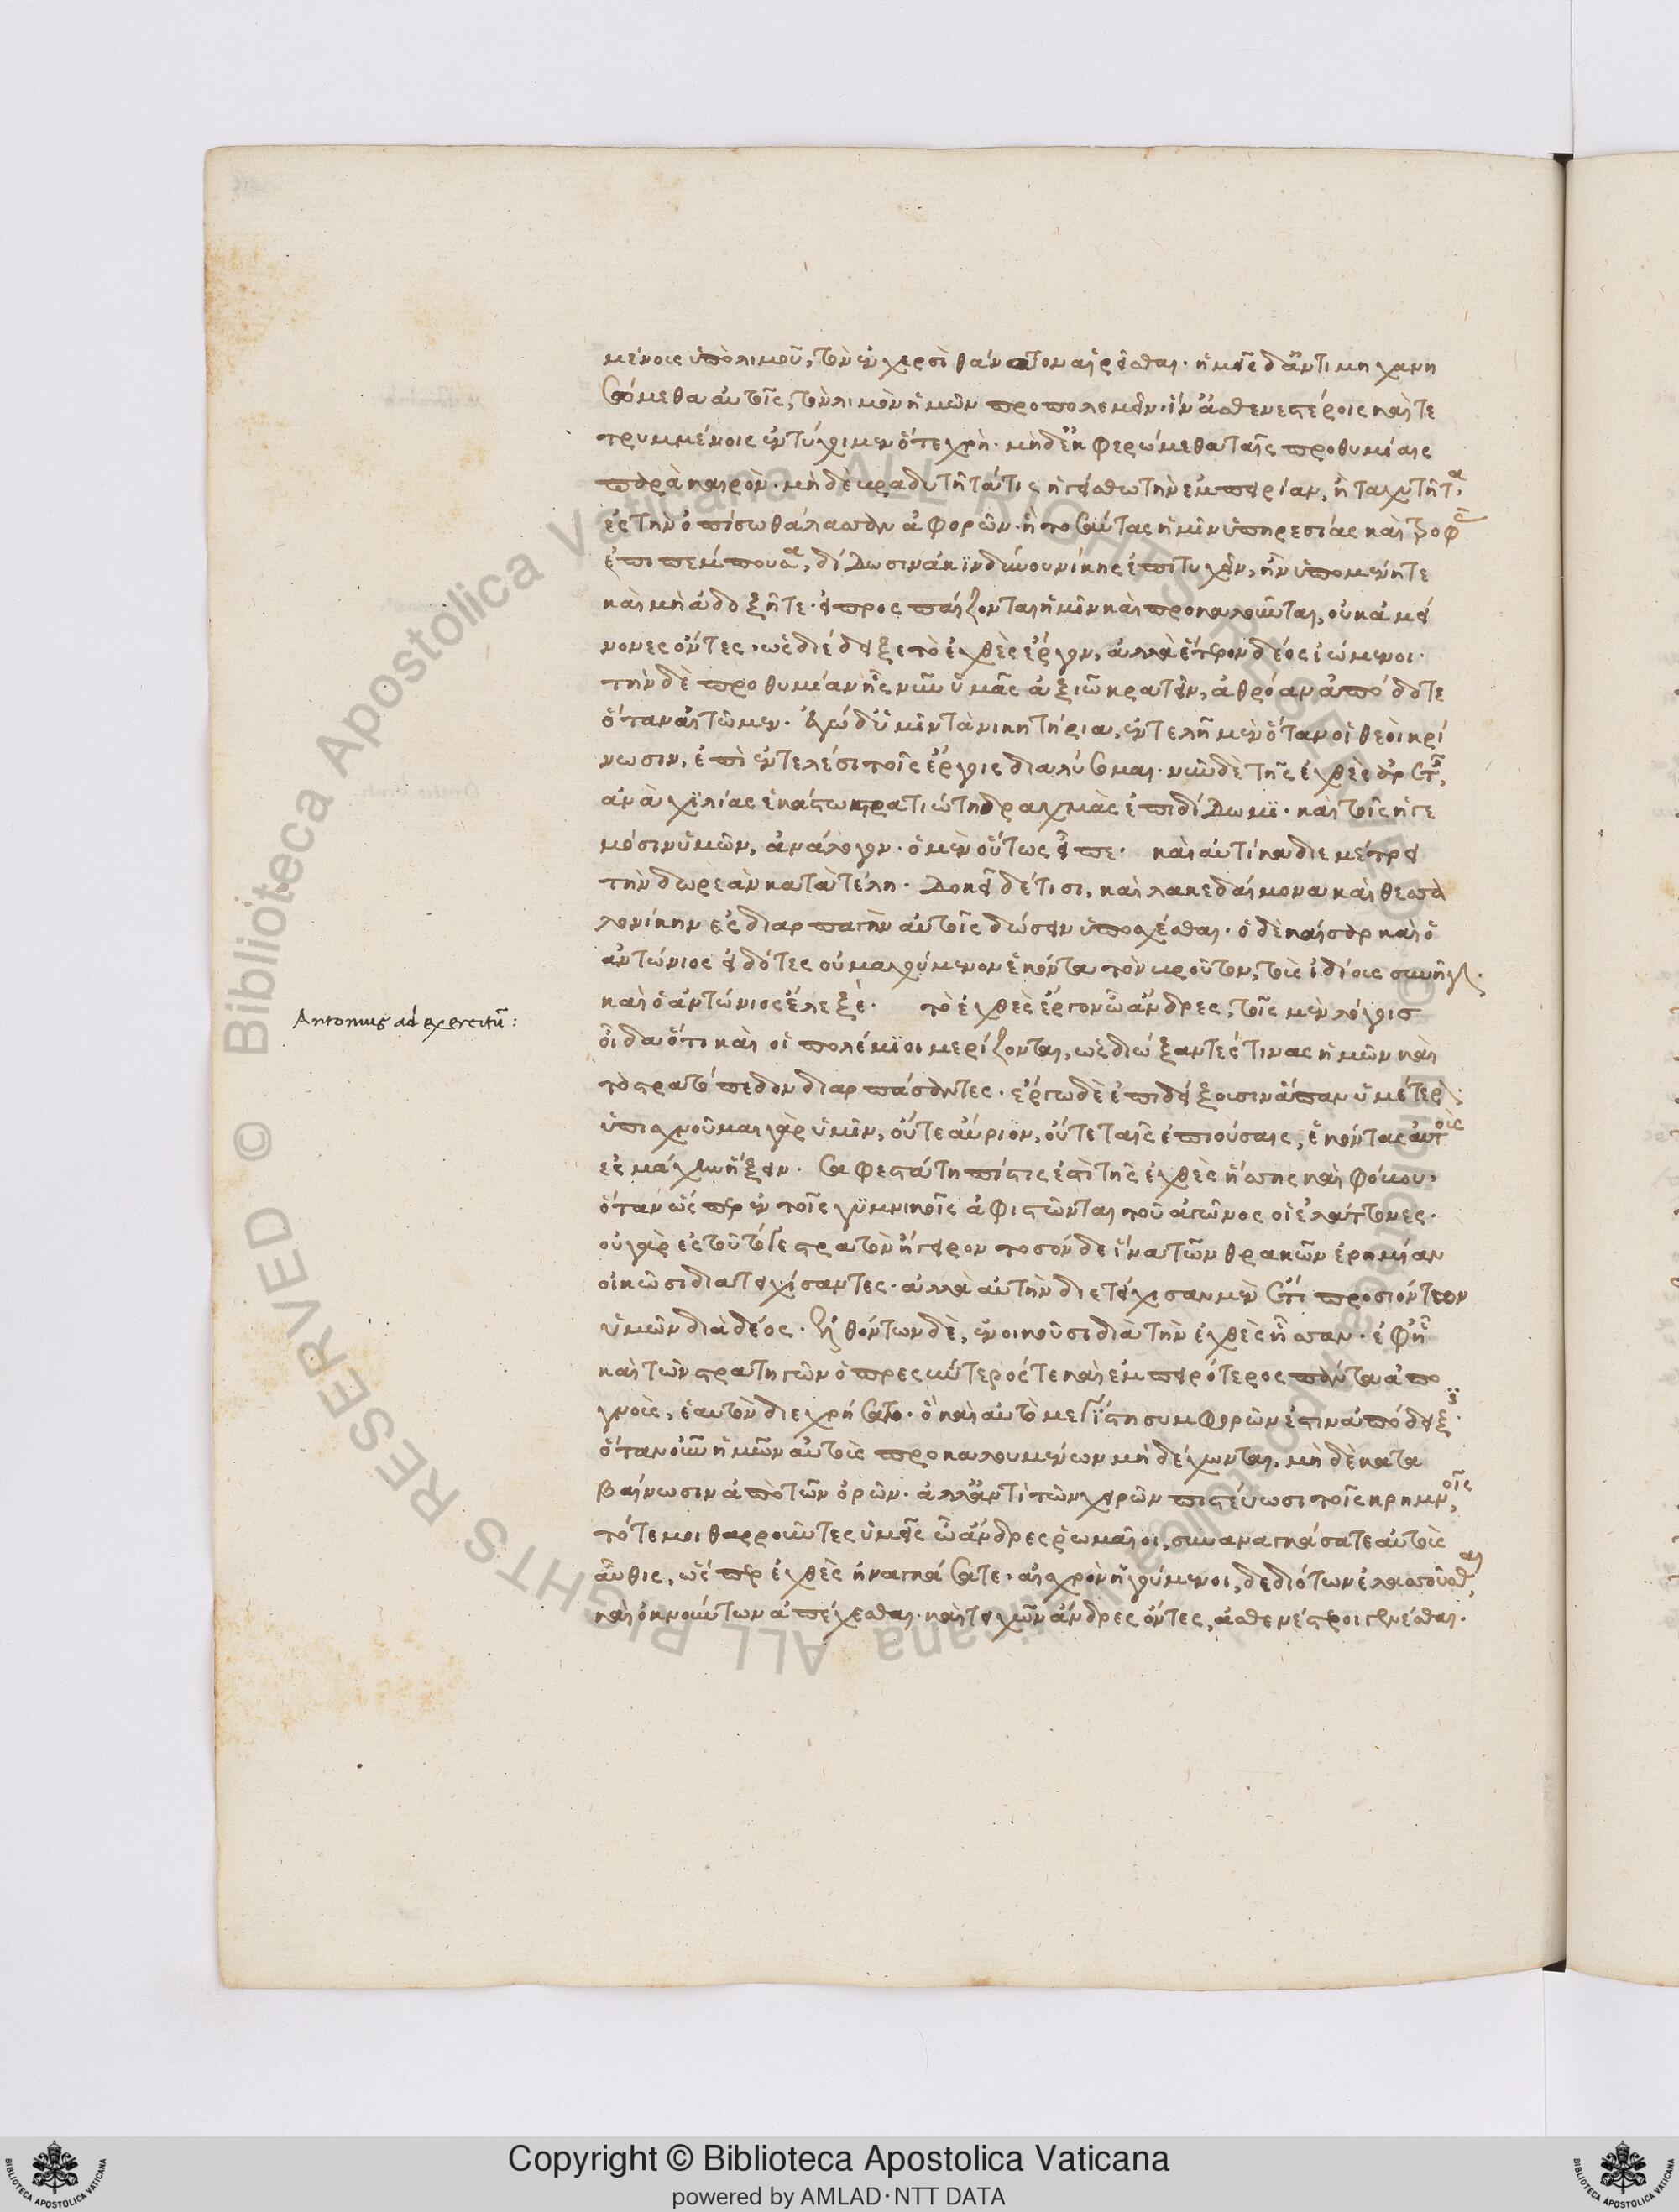 μένοις ὑπὸ λιμοῦ, τὸν ἐν χερσὶ θάνατον αἱρεῖσθαι· ἡμεῖς δ' ἀντιμηχανη
σόμεθα αὐτοῖς, τὸν λιμὸν ἡμῶν προπολεμεῖν· ἵν' ἀσθενεστέροις καὶ τε
τρυμμένοις ἐντύχοιμεν ὅτε χρή· μηδ' ἐκφερώμεθα ταῖς προθυμίαις
παρὰ καιρόν· μὴ δὲ βραδυτῆτά τις ἡγείσθω τὴν ἐμπειρίαν, ἢ ταχυτῆτα,
ἐς τὴν ὀπίσω θάλασσαν ἀφορῶν· ἣ τοσαύτας ἡμῖν ὑπηρεσίας καὶ τροφὰς
ἐπιπέμπουσα, δίδωσιν ἀκίνδυνου νίκης ἐπιτυχεῖν, ἢν ὑπομένητε
καὶ μὴ ἀδοξῆτε· εἰ προσπαίζονται ἡμῖν καὶ προκαλοῦνται, οὐκ ἀμεί
νονες ὄντες, ὡς διέδειξε τὸ ἐχθὲς ἔργον, ἀλλὰ ἕτερον δέος ἰώμενοι·
τὴν δὲ προθυμίαν ἧς νῦν ὑμᾶς ἀξιῶ κρατεῖν, ἀθρόαν ἀπόδοτε
ὅταν αἰτῶμεν· ἐγὼ δ' ὑμῖν τὰ νικητήρια, ἐντελῆ μὲν ὅταν οἱ θεοὶ κρί
νωσιν, ἐπὶ ἐντελέσι τοῖς ἔργοις διαλύσομαι· νῦν δὲ τῆς ἐχθὲς ἀρετῆς,
ἀνὰ χιλίας ἑκάστω στρατιώτη δραχμὰς ἐπιδίδωμι· καὶ τοῖς ἡγε
μόσιν ὑμῶν, ἀνάλογον· ὁ μὲν οὕτως εἶπε· καὶ αὐτίκα διεμέτρει
τὴν δωρεὰν κατὰ τέλη· δοκεῖ δέ τισι, καὶ λακεδαίμονα καὶ θεσσα
λονίκην ἐς διαρπαγὴν αὐτοῖς δώσειν ὑποσχέσθαι· ὁ δὲ καίσαρ καὶ ὁ
ἀντώνιος εἰδότες οὐ μαχούμενον ἑκόντα τὸν βροῦτον, τοὺς ἰδίους συνῆγον·
καὶ ὁ ἀντώνιος ἔλεξε· τὸ ἐχθὲς ἔργον ὦ ἄνδρες, τοῖς μὲν λόγοις
οἶδα ὅτι καὶ οἱ πολέμιοι μερίζονται, ὡς διώξαντές τινας ἡμῶν καὶ
τὸ στρατόπεδον διαρπάσαντες· ἔργω δὲ ἐπιδείξουσιν ἅπαν ὑμέτερον·
ὑπισχνοῦμαι γὰρ ὑμῖν, οὔτε αὔριον, οὔτε ταῖς ἐπιούσαις, ἑκόντας αὐτοὺς
ἐς μάχην ἥξειν· σαφεστάτη πίστις ἐστὶ τῆς ἐχθὲς ἥσσης καὶ φόβου·
ὅταν ὥσπερ ἐν τοῖς γυμνικοῖς ἀφιστῶνται τοῦ ἀγῶνος οἱ ἐλάττονες·
οὐ γὰρ ἐς τοῦτό γε στρατὸν ἤγειρον τοσόνδε ἵνα τῶν θρακῶν ἐρημίαν
οἰκῶσι διατειχίσαντες· ἀλλὰ αὐτὴν διετείχισαν μὲν ἔτι προσιόντων
ὑμῶν διὰ δέος· ἐλθόντων δὲ, ἐνοικοῦσι διὰ τὴν ἐχθὲς ἧσσαν· ἐφ' ᾗ
καὶ τῶν στρατηγῶν ὁ πρεσβύτερός τε καὶ ἐμπειρότερος πάντα ἀπο
γνοὺς, ἑαυτὸν διεχρήσατο· ὃ καὶ αὐτὸ μεγίστη συμφορῶν ἐστιν ἀπόδειξις·
ὅταν οὖν ἡμῶν αὐτοὺς προκαλουμένων μὴ δέχωνται, μὴ δὲ κατα
βαίνωσιν ἀπὸ τῶν ὀρῶν· ἀλλ' ἀντὶ τῶν χειρῶν πιστεύωσι τοῖς κρημνοῖς,
τότε μοι θαρροῦντες ὑμεῖς ὦ ἄνδρες ῥωμαῖοι, συναναγκάσατε αὐτοὺς
αὖθις, ὥσπερ ἐχθὲς ἠναγκάσατε· αἰσχρὸν ἡγούμενοι, δεδιότων ἐλασσοῦσθαι,
καὶ ὀκνούντων ἀπέχεσθαι· καὶ τειχῶν ἄνδρες ὄντες, ἀσθενέστεροι γενέσθαι·
Antonius ad exercitū:
Copyright © Biblioteca Apostolica Vaticana
powered by AMLAD·NTT DATA